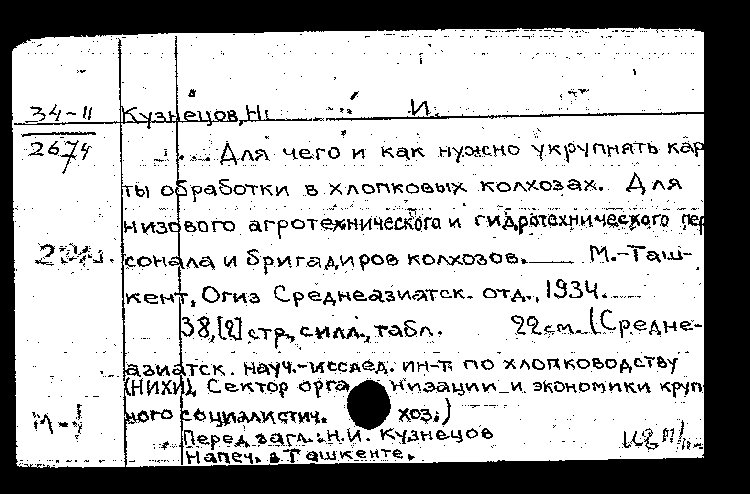 34-II Кузнецов, Н. И.
2674 Для чего и как нужно укрупнять кар
ты обработки в хлопковых колхозах. Для
низового агротехнического и гидротехнического пер
сонала и бригадиров колхозов. М.-Таш-
кент, Огиз Среднеазиатск. отд., 1934.
38,[2] стр., с илл., табл. 22 см. (Средне-
азиатск. науч.-исслед. ин-т по хлопководству
(НИХИ). Сектор орга низации и экономики круп
ного социалистич. хоз.)
Перед загл.: Н.И. Кузнецов
Напеч. в Ташкенте.